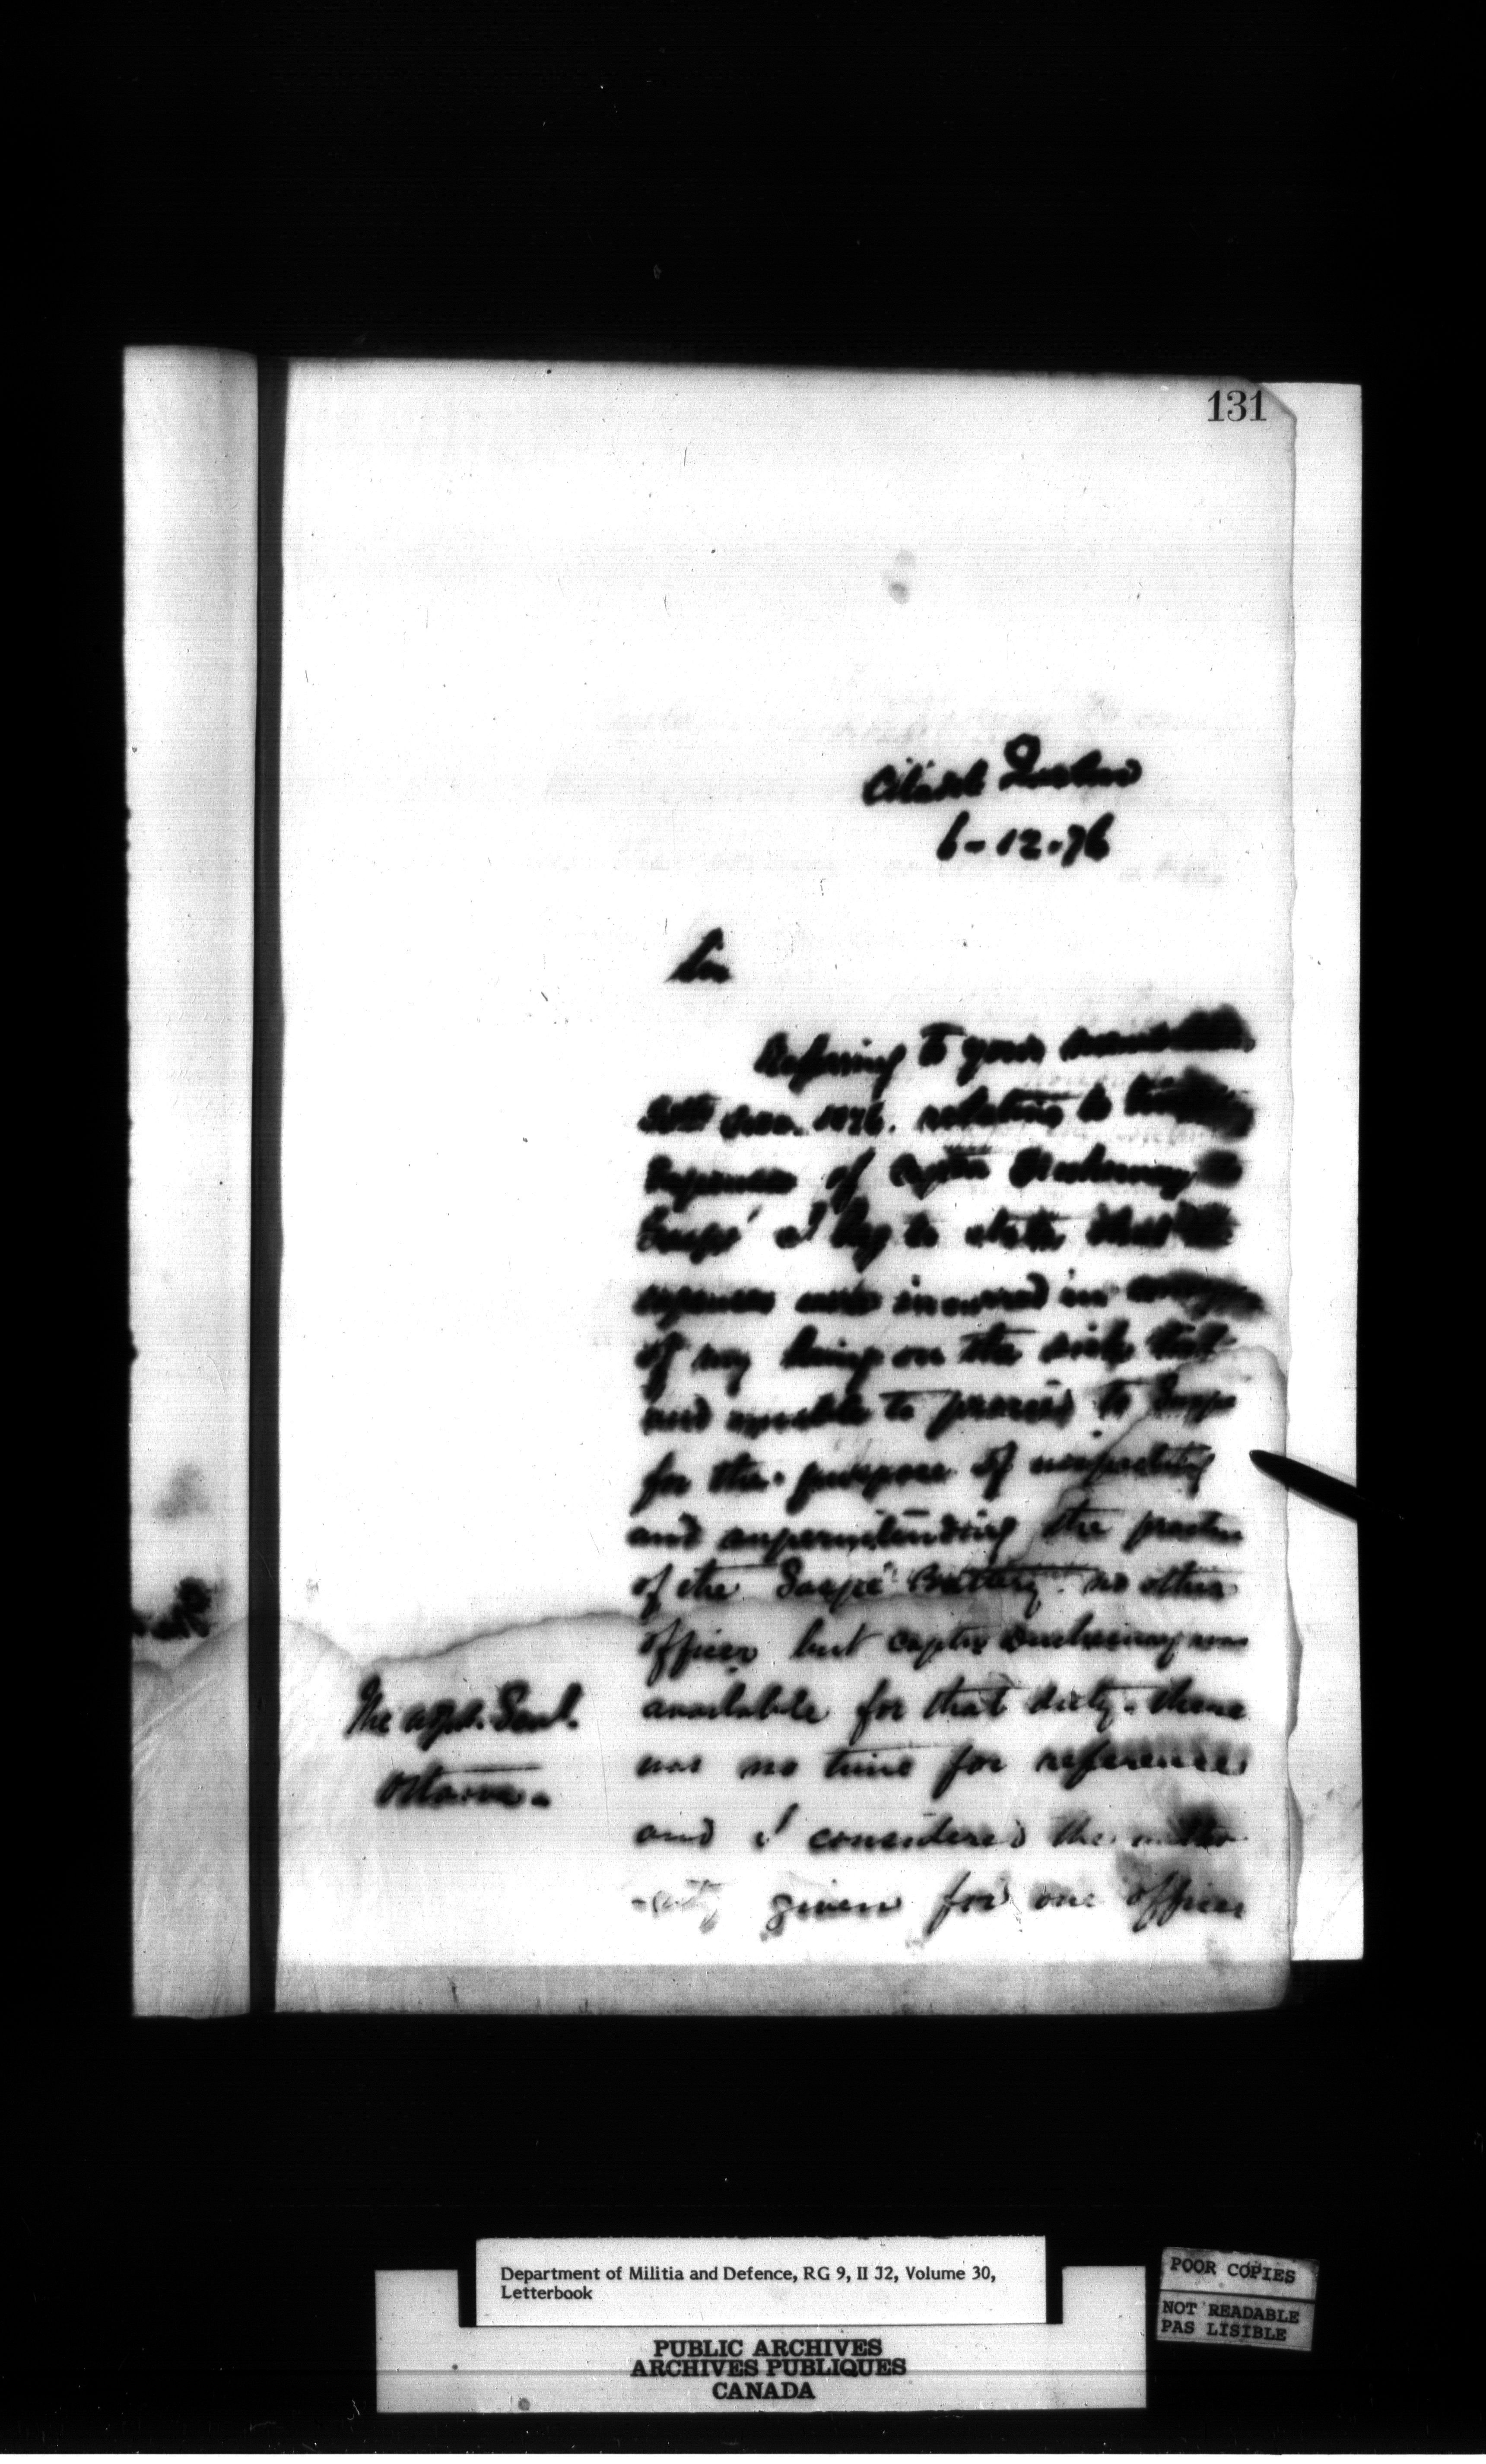 131
Citadel Quebec
6-12-76
Sir
Referring to your
30th Nov. 1876. relating to
expenses of Captn Duchesnay to
Gaspé I beg to state that the
expenses were incurred in
of my being on the sick list
and unable to proceed to Gaspé
for the purpose of inspecting
and superintending the practice
of the Gaspé Battery. no other
officer but Captn Duchesnay was
available for that duty. there
was no time for reference
and I considered the
given for one officer
The Agt. Genl.
Ottawa.
Department of Militia and Defence, RG 9, II J2, Volume 30,
Letterbook
PUBLIC ARCHIVES
ARCHIVES PUBLIQUES
CANADA
POOR COPIES
NOT READABLE
PAS LISIBLE